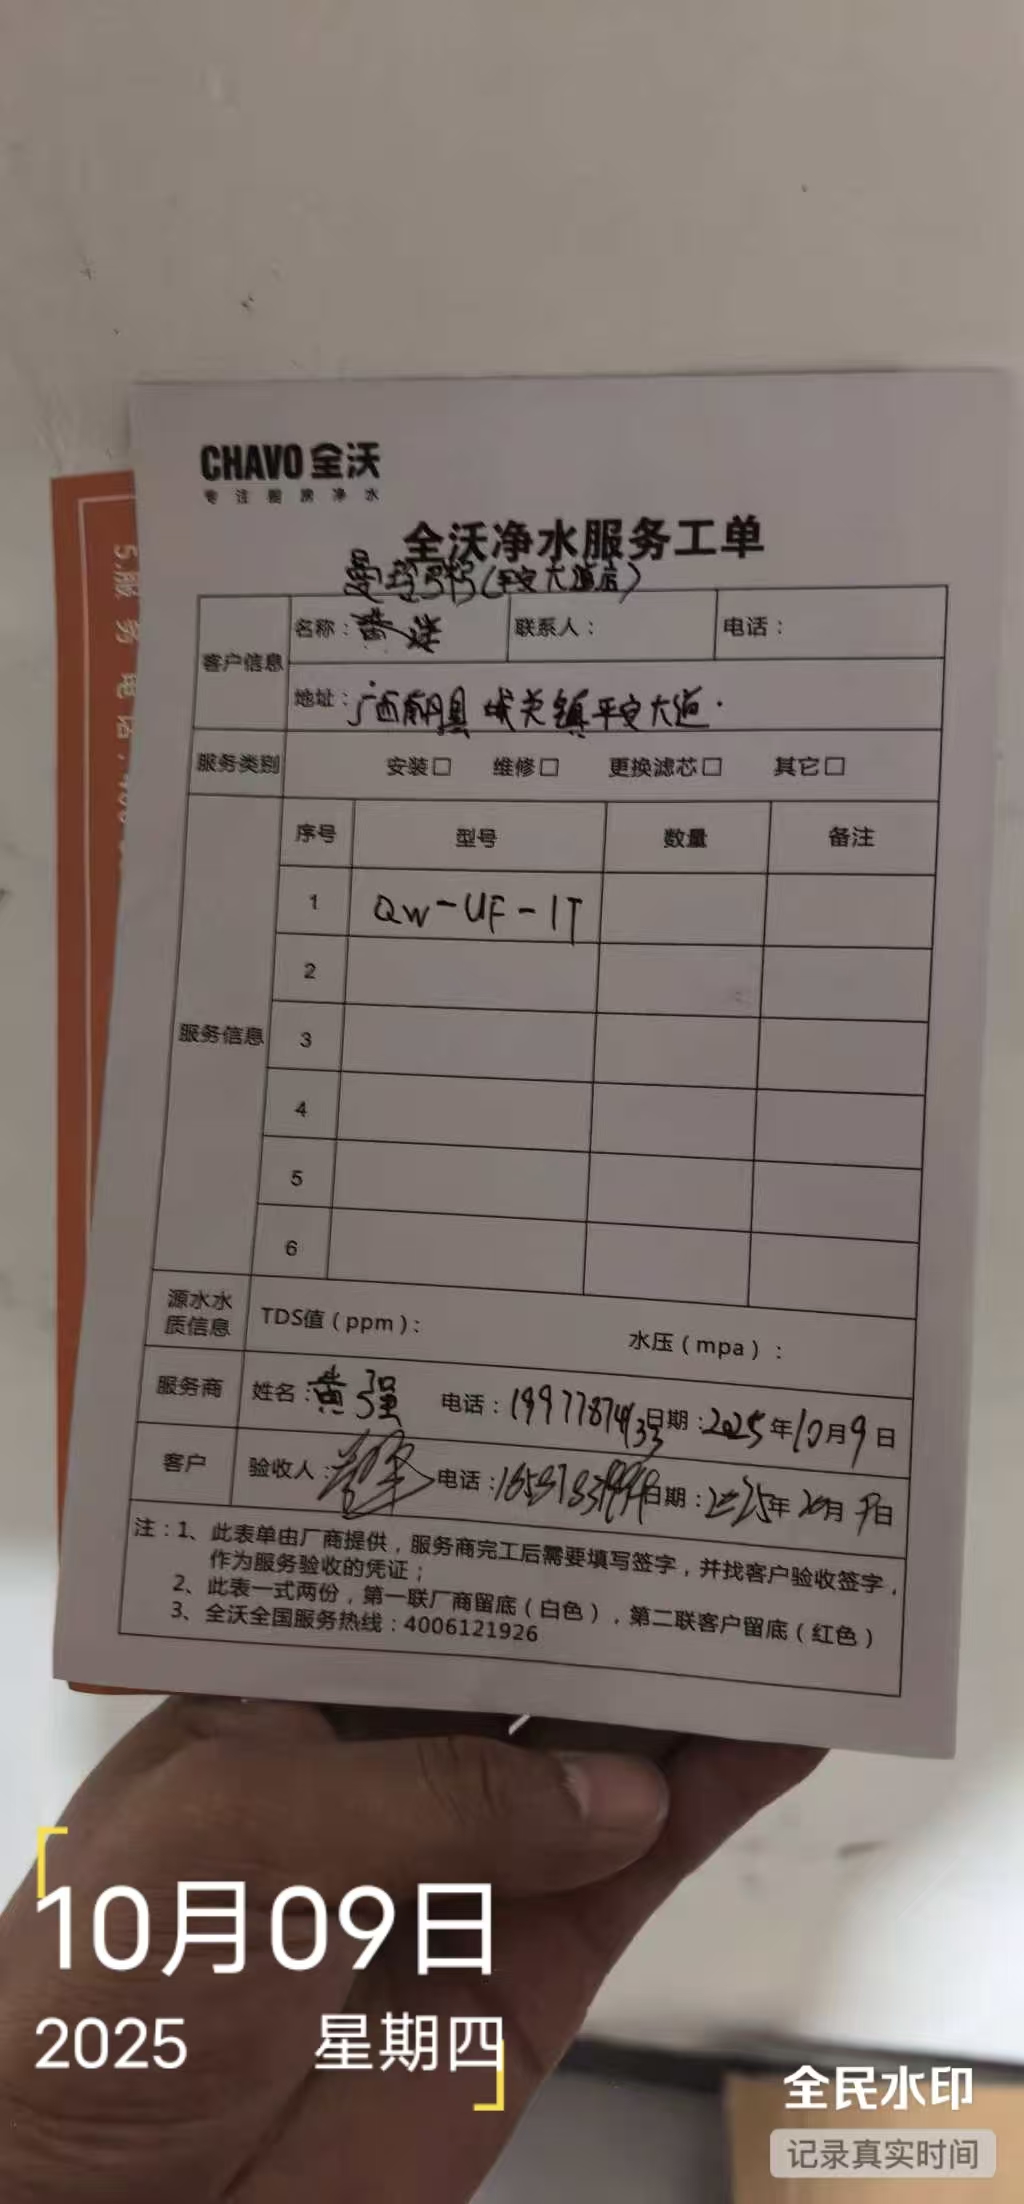 CHAVO 全沃
专注厨房净水
全沃净水服务工单
曼玲粥粉(平安大道店)
客户信息 名称： 联系人： 电话：
地址：广西南丹县城关镇平安大道.
服务类别 安装□ 维修□ 更换滤芯□ 其它□
服务信息 序号 型号 数量 备注
1 QW-UF-1T
2
3
4
5
6
源水水质信息 TDS值（ppm）： 水压（mpa）：
服务商 姓名：黄强 电话： 日期：2025年10月9日
客户 验收人： 电话： 日期：
注：1、此表单由厂商提供，服务商完工后需要填写签字，并找客户验收签字，
作为服务验收的凭证；
2、此表一式两份，第一联厂商留底（白色），第二联客户留底（红色）
3、全沃全国服务热线：4006121926
5.服务电话:400
10月09日
2025 星期四
全民水印
记录真实时间